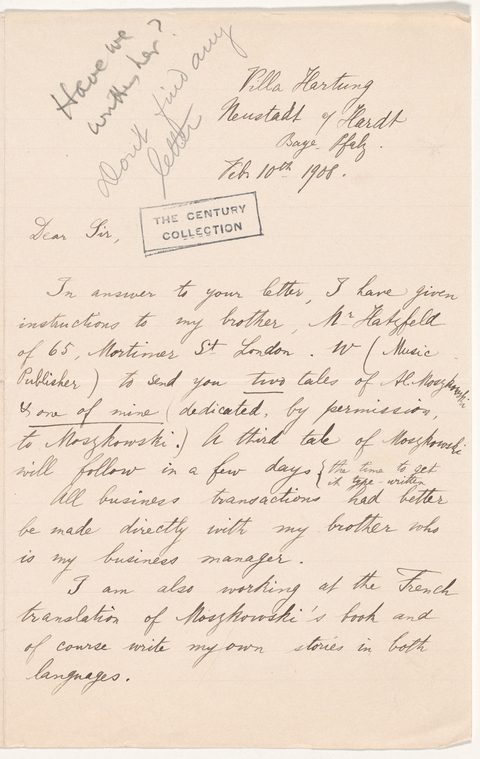 Have we
written her?
Don't find any
letter
Villa Hartung
Neustadt a/ Hardt
Baye. Pfalz.
Feb 10th 1908.
THE CENTURY
COLLECTION
Dear Sir,
In answer to your letter, I have given
instructions to my brother, Mr Hatzfeld
of 65, Mortimer St London. W (Music
Publisher) to send you two tales of Al. Moszkowski
& one of mine (dedicated, by permission,
to Moszkowski.) A third tale of Moszkowski
will follow in a few days { the time to get
it type-written
All business transactions had better
be made directly with my brother who
is my business manager.
I am also working at the French
translation of Moszkowski's book and
of course write my own stories in both
languages.